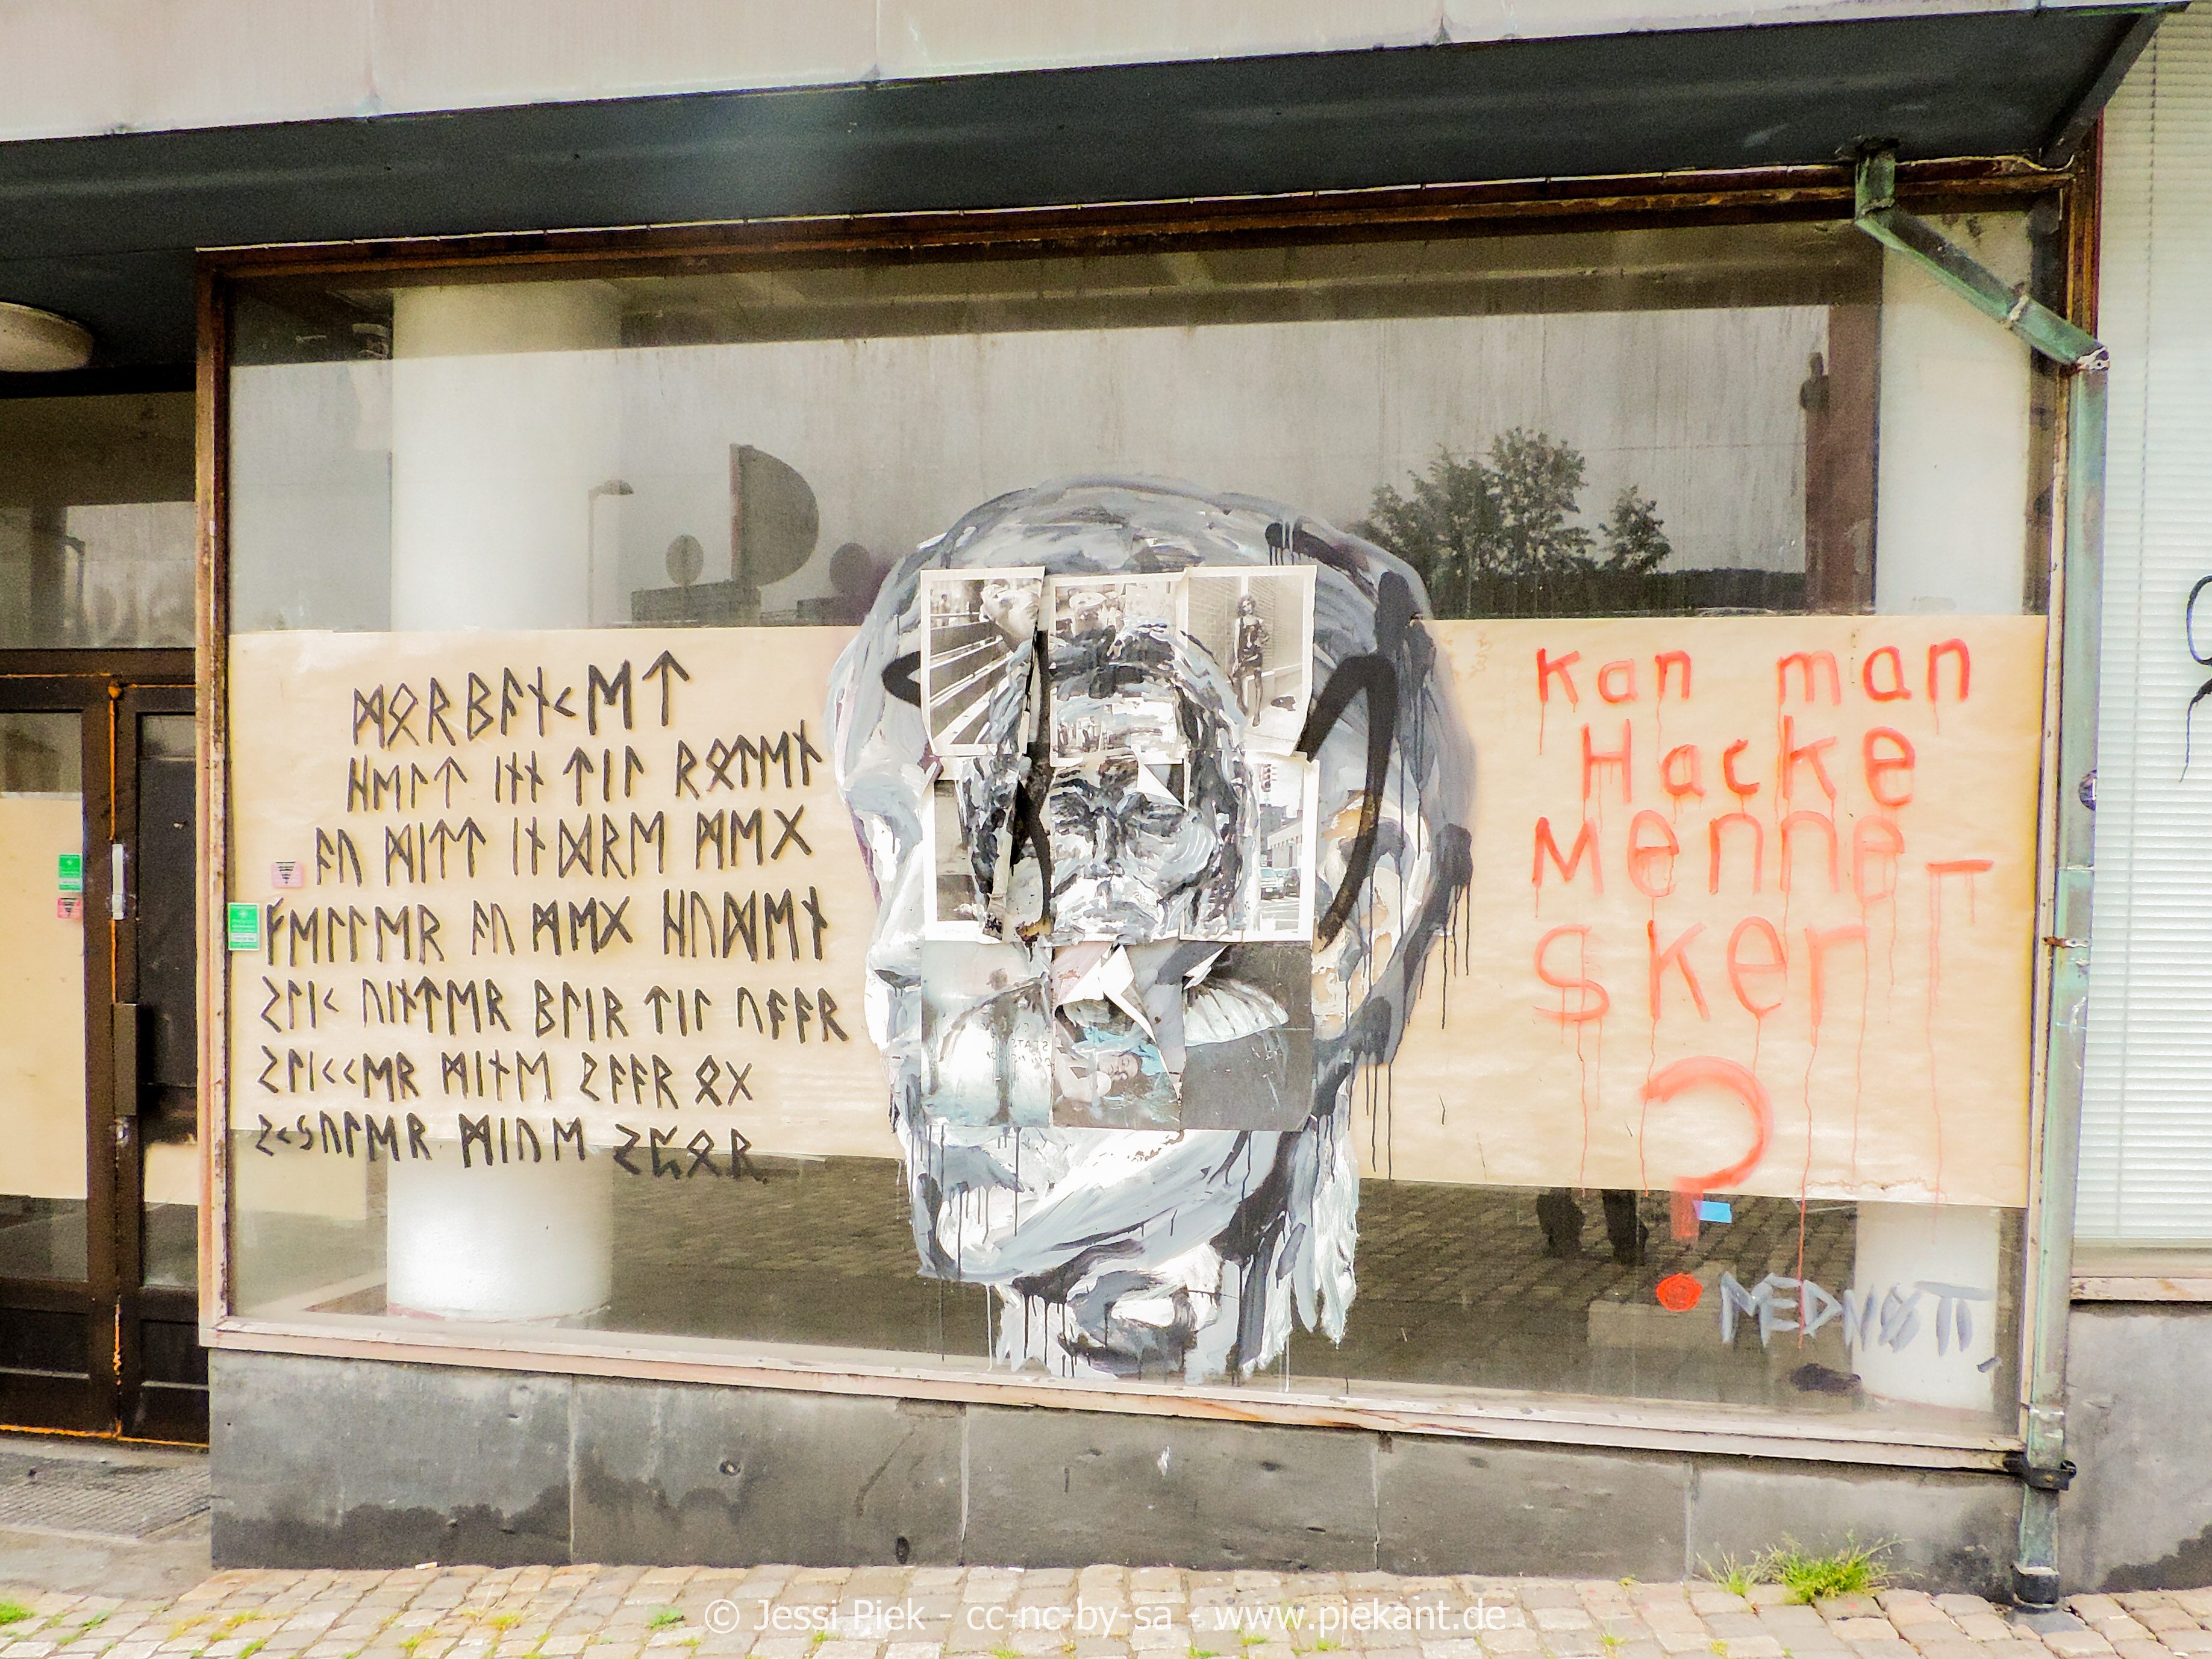 ᛗᛟᚱᛒᚨᚾᚲᛖᛏ
ᚺᛖᛚᛏ ᛁᚾᚾ ᛏᛁᛚ ᚱᛟᛏᛖᚾ
ᚨᚢ ᛗᛁᛏᛏ ᛁᚾᛞᚱᛖ ᛗᛖᚷ
ᚠᛖᛚᛚᛖᚱ ᚨᚢ ᛗᛖᚷ ᚺᚢᛞᛖᚾ
ᛊᛚᛁᚲ ᚢᛁᚾᛏᛖᚱ ᛒᛚᛁᚱ ᛏᛁᛚ ᚢᚨᚨᚱ
ᛊᛚᛁᚲᚲᛖᚱ ᛗᛁᚾᛖ ᛊᚨᚨᚱ ᛟᚷ
ᛊᚲᛃᚢᛚᛖᚱ ᛗᛁᚾᛖ ᛊᛈᛟᚱ.
Kan man
Hacke
Menne-
sker
?
© Jessi Piek - cc-nc-by-sa - www.piekant.de